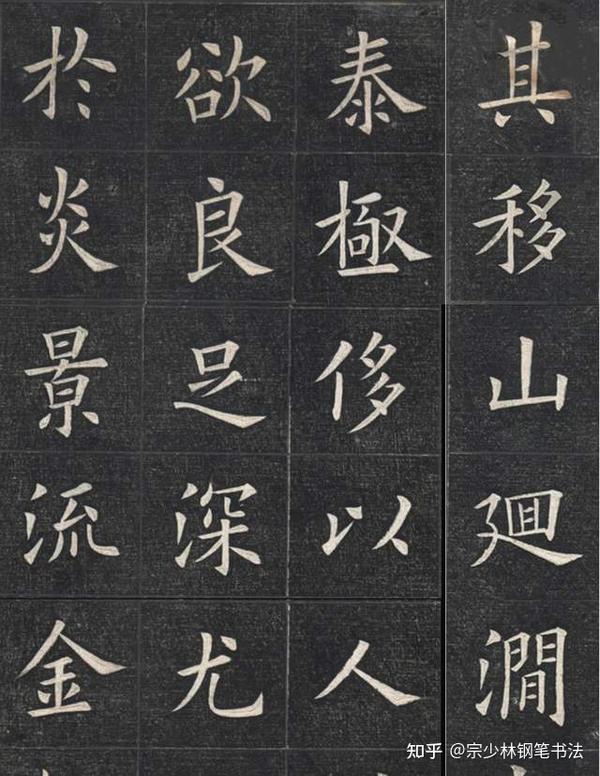 其移山廻澗
泰極侈以人
欲良足深尤
於炎景流金
知乎 @宗少林钢笔书法